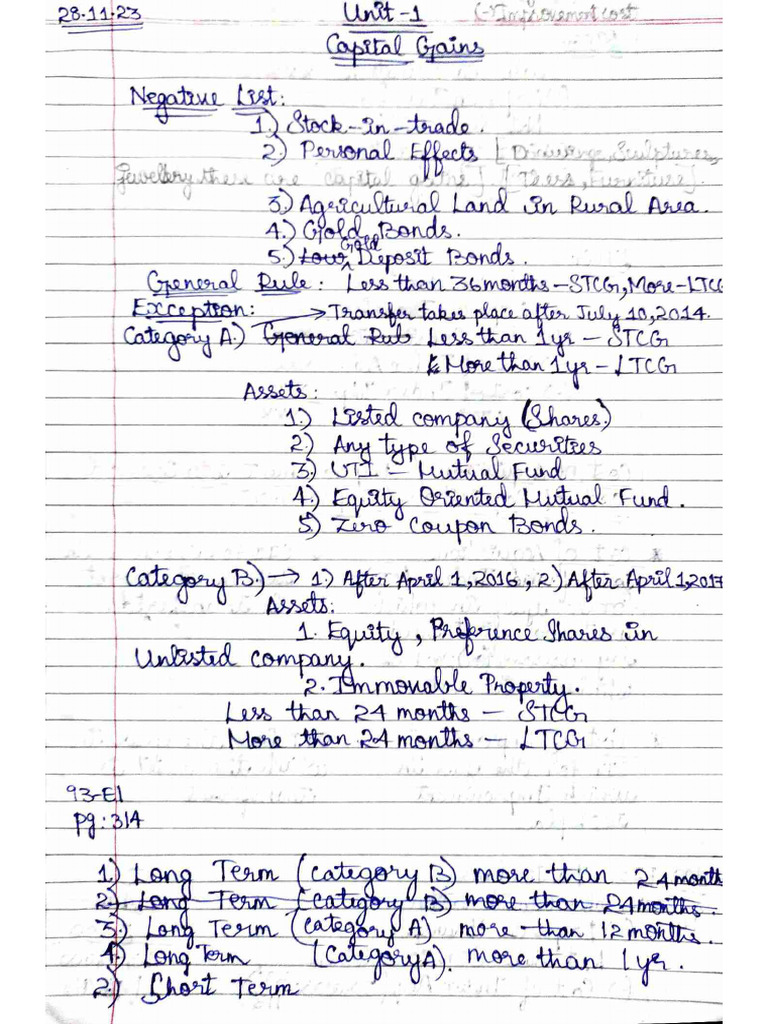 28.11.23 Unit-1 (-) Improvement cost
Capital Gains
Negative List:
1.) Stock-in-trade.
2.) Personal Effects [ Drawing, Sculptures,
Jewellery these are capital
3.) Agricultural Land in Rural Area.
4.) Gold Bonds.
5.) Gold Deposit Bonds.
General Rule: Less than 36 months - STCG, More - LTCG
Exception: → Transfer takes place after July 10, 2014.
Category A.) General Rule Less than 1yr - STCG
& More than 1yr - LTCG
Assets:
1.) Listed company (Shares.)
2.) Any type of Securities
3.) UTI - Mutual Fund
4.) Equity Oriented Mutual Fund.
5.) Zero Coupon Bonds.
Category B.) → 1.) After April 1, 2016, 2.) After April 1, 2017
Assets:
1. Equity, Preference Shares in
Unlisted company.
2. Immovable Property.
Less than 24 months - STCG
More than 24 months - LTCG
93-E1
Pg: 314
1.) Long Term (Category B) more than 24 month
2.) Long Term (Category B) more than 24 months.
3.) Long Term (Category A) more-than 12 months.
4.) Long Term (Category A). more than 1yr.
2.) Short Term